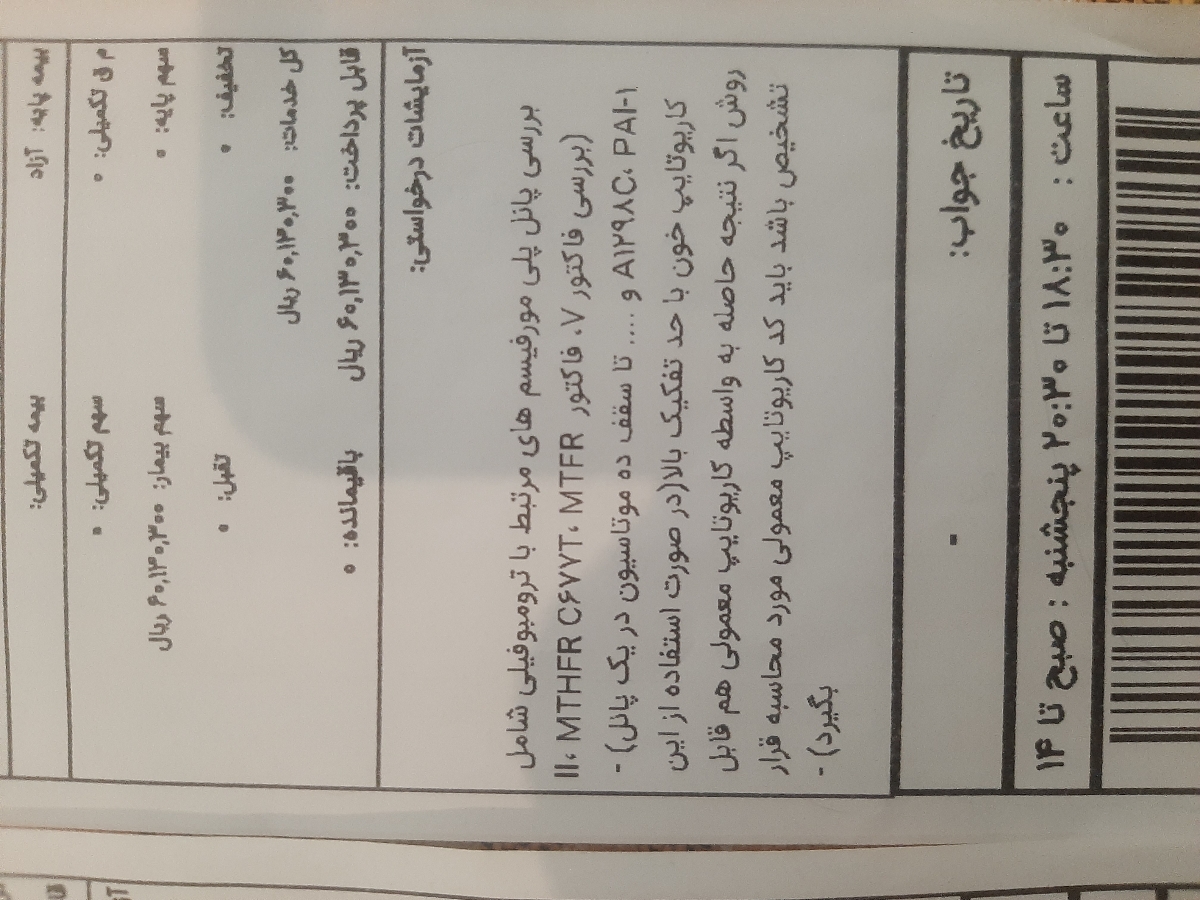 بیمه پایه: آزاد بیمه تکمیلی:
م ق تکمیلی: ۰ سهم تکمیلی: ۰
سهم پایه: ۰ سهم بیمار: ۶۰,۱۳۰,۳۰۰ ریال
تخفیف: ۰ تقبل: ۰
کل خدمات: ۶۰,۱۳۰,۳۰۰ ریال
قابل پرداخت: ۶۰,۱۳۰,۳۰۰ ریال باقیمانده: ۰
آزمایشات درخواستی:
بررسی پانل پلی مورفیسم های مرتبط با ترومبوفیلی شامل
(بررسی فاکتور V، فاکتور II، MTHFR C۶۷۷T، MTFR
A۱۲۹۸C، PAI-۱ و .... تا سقف ده موتاسیون در یک پانل) -
کاریوتایپ خون با حد تفکیک بالا(در صورت استفاده از این
روش اگر نتیجه حاصله به واسطه کاریوتایپ معمولی هم قابل
تشخیص باشد باید کد کاریوتایپ معمولی مورد محاسبه قرار
بگیرد) -
تاریخ جواب: -
ساعت : ۱۸:۳۰ تا ۲۰:۳۰ پنجشنبه : صبح تا ۱۴